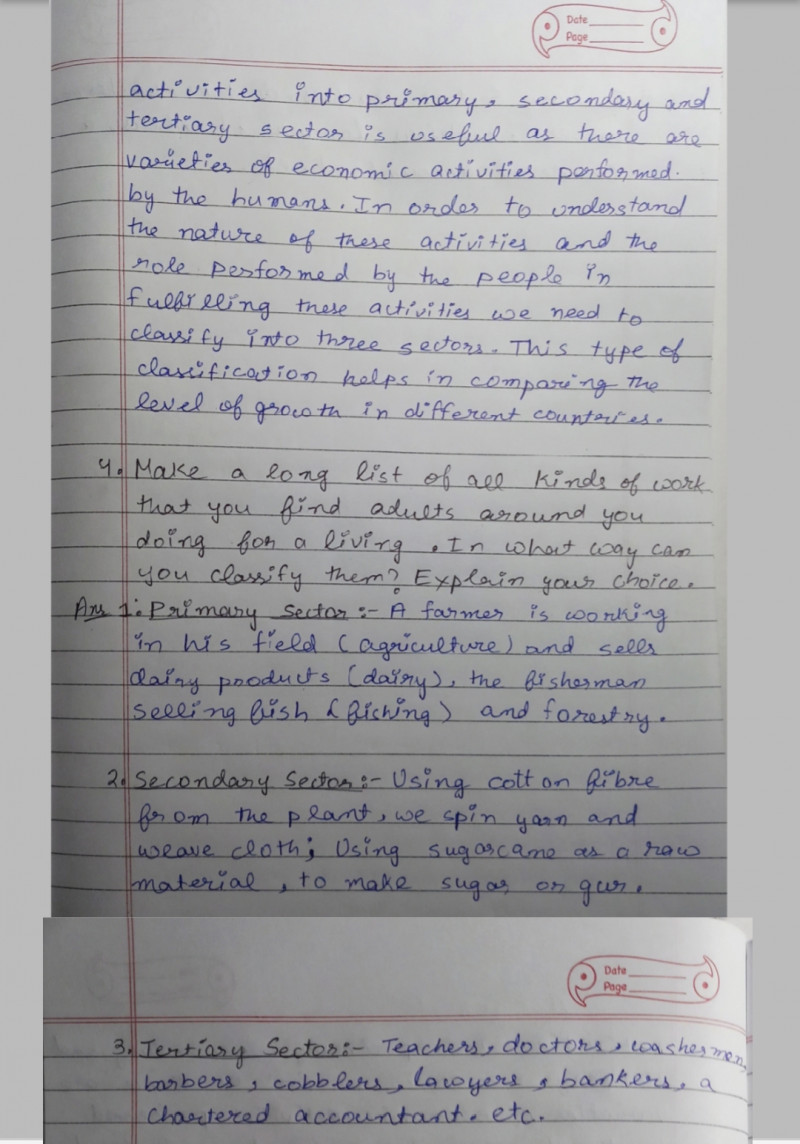 Date
Page
activities into primary, secondary and
tertiary sector is useful as there are
varieties of economic activities performed.
by the humans. In order to understand
the nature of these activities and the
role performed by the people in
fulfilling these activities we need to
classify into three sectors. This type of
classification helps in comparing the
level of growth in different countries.
4. Make a long list of all kinds of work
that you find adults around you
doing for a living. In what way can
you classify them? Explain your choice.
Ans 1. Primary Sector :- A farmer is working
in his field (agriculture) and sells
dairy products (dairy), the fisherman
selling fish (fishing) and forestry.
2. Secondary Sector :- Using cotton fibre
from the plant, we spin yarn and
weave cloth; Using sugarcane as a raw
material, to make sugar or gur.
Date
Page
3. Tertiary Sector :- Teachers, doctors, washermen,
barbers, cobblers, lawyers, bankers, a
chartered accountant. etc.